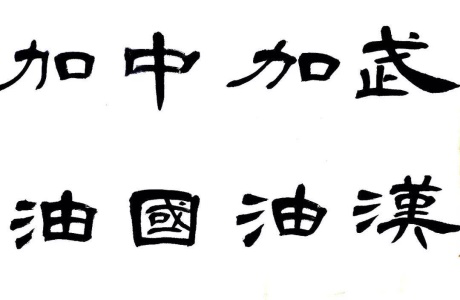 武漢
加油
中國
加油